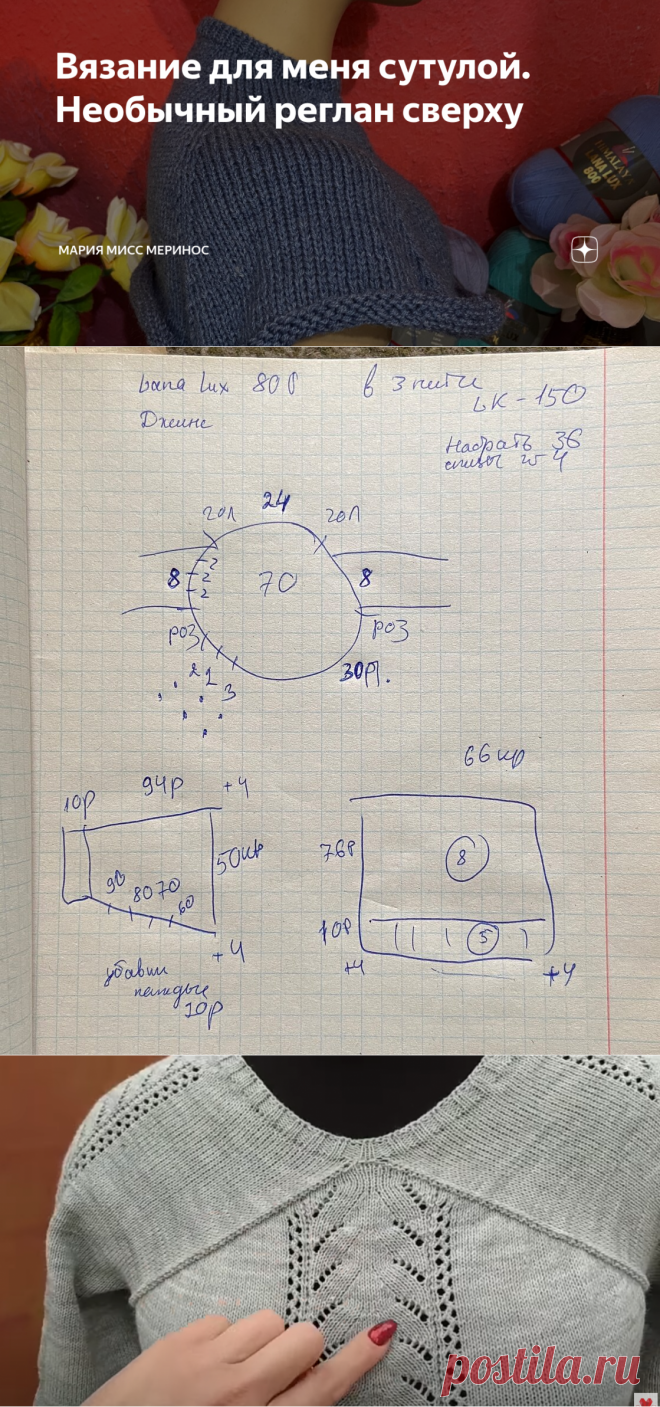 Вязание для меня сутулой.
Необычный реглан сверху
МАРИЯ МИСС МЕРИНОС
HIMALAYA
LANA LUX
800
Lana lux 800 в 3 нити
LK - 150
Джинс
Набрать 36
24
70
8
2
2
2
8
роз
роз
2 1 3
30р.
66 up
10р 94р +4
90 80 70 60
+4
убавки
каждые
10р
76р
8
10р
5
+4 +4
postila.ru